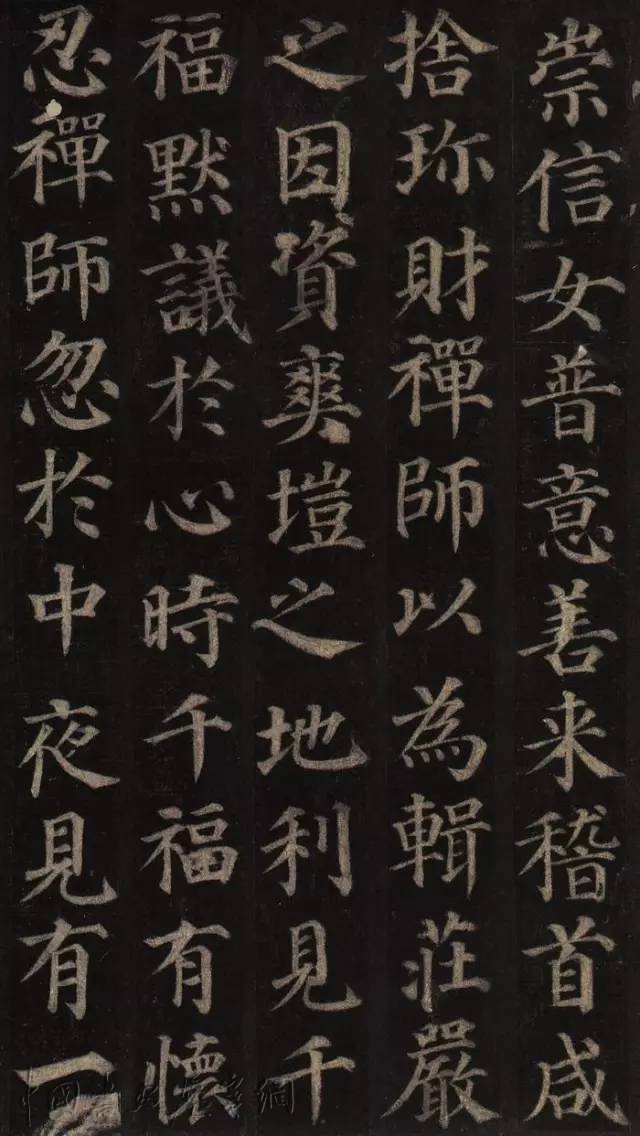 崇信女普意善来稽首咸
捨珎財禪師以為輯莊嚴
之因資爽塏之地利見千
福默議於心時千福有懷
忍禪師忽於中夜見有一
中國書法藝術網